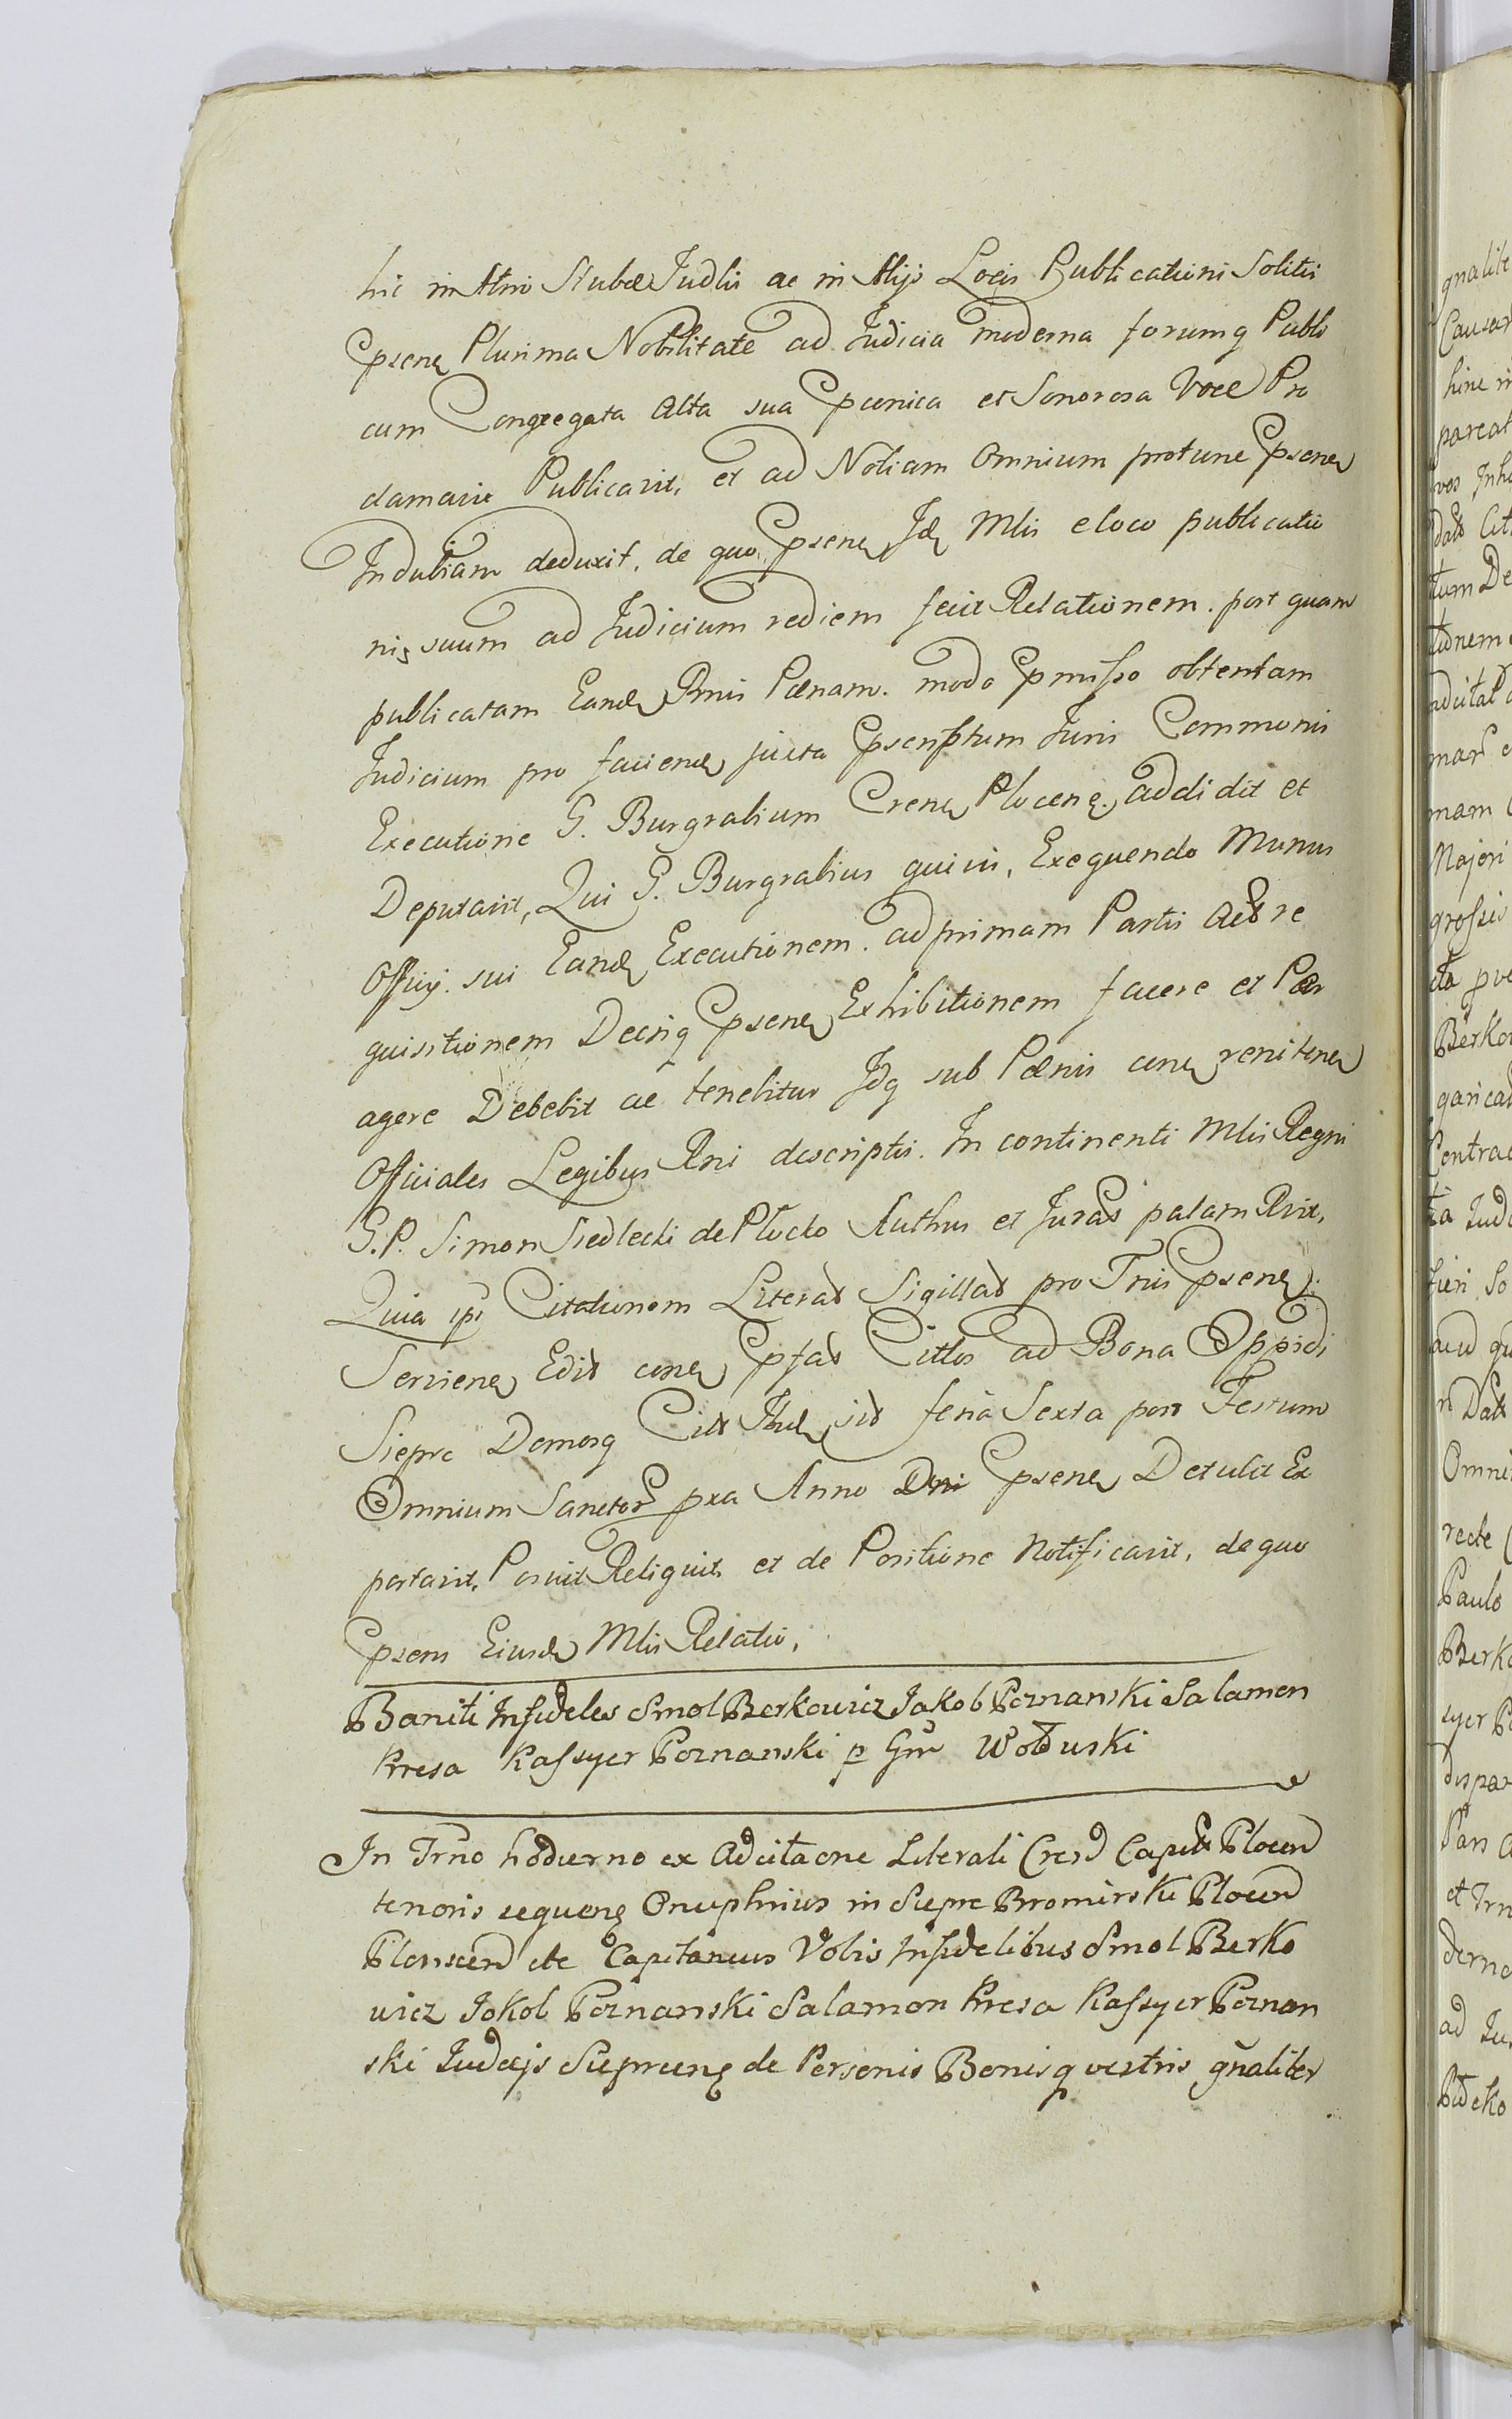 hic in Atrio Stubæ Judlis ac in Alijs Locis Publicationi Solitis
Epsenę Plurima Nobilitate ad Judicia moderna forumq Publi
cum Congregata Alta sua Epconica et Sonorosa Voce Pro
clamavit Publicavit, et ad Notiam Omnium protunc Epsenę
Indubiam deduxit, de quo Epsenę Idę Mlis e loco publicatio
nis suum ad Judicium rediem fecit Relationem. post quam
publicatam Eandę Bnis Pœnam. modo Epmisso obtentam
Judicium pro faciendę juxta Epscriptum Juris Communis
Executione G. Burgrabium Crenę Plocenę. addidit et
Deputavit, Qui G. Burgrabius quivis, Exequendo Munus
Officij. sui Eandę Executionem. ad primam Partis Act re
quisitionem Decrię Epsenę Exhibitionem facere et Per
agere Debebit ac tenebitur Idq sub Pœnis conę renitenę
Officiales Legibus Rni descriptis. In continenti Mlis Regni
G.P. Simon Siedlecki de Plocko Authus et Jurat palam Rvit,
Quia ipe Citationem Literat Sigillat pro Trnis Epsenę.
Serviene Edit conę Epfat Cittos ad Bona Oppidi
Sieprc Domosq Citt Ibidę sit feria Sexta post Festum
Omnium Sanctor pxa Anno Dni Epsenę Detulit Ex
portavit, Posuit Reliquit, et de Positione Notificavit, de quo
Epsens Eiusdę Mlis Relatio,
Baniti Infideles Smol Berkowicz Jakob Poznanski Salamon
Kresa Kassyer Poznanski p Gnr Wolduski
In Trno hodierno ex Adcitaone Literali Cresd Capitt Plocen
tenoris sequenę Onuphrius in Siepre Bromirski Plocen
Plonscen etc Capitaneus Vobis Infidelibus Smol Berko
wicz Jokob Poznanski Salamon Kresa Kassyer Poznan
ski Judæjs Sieprcenę de Personis Bonisq vestris gñaliter